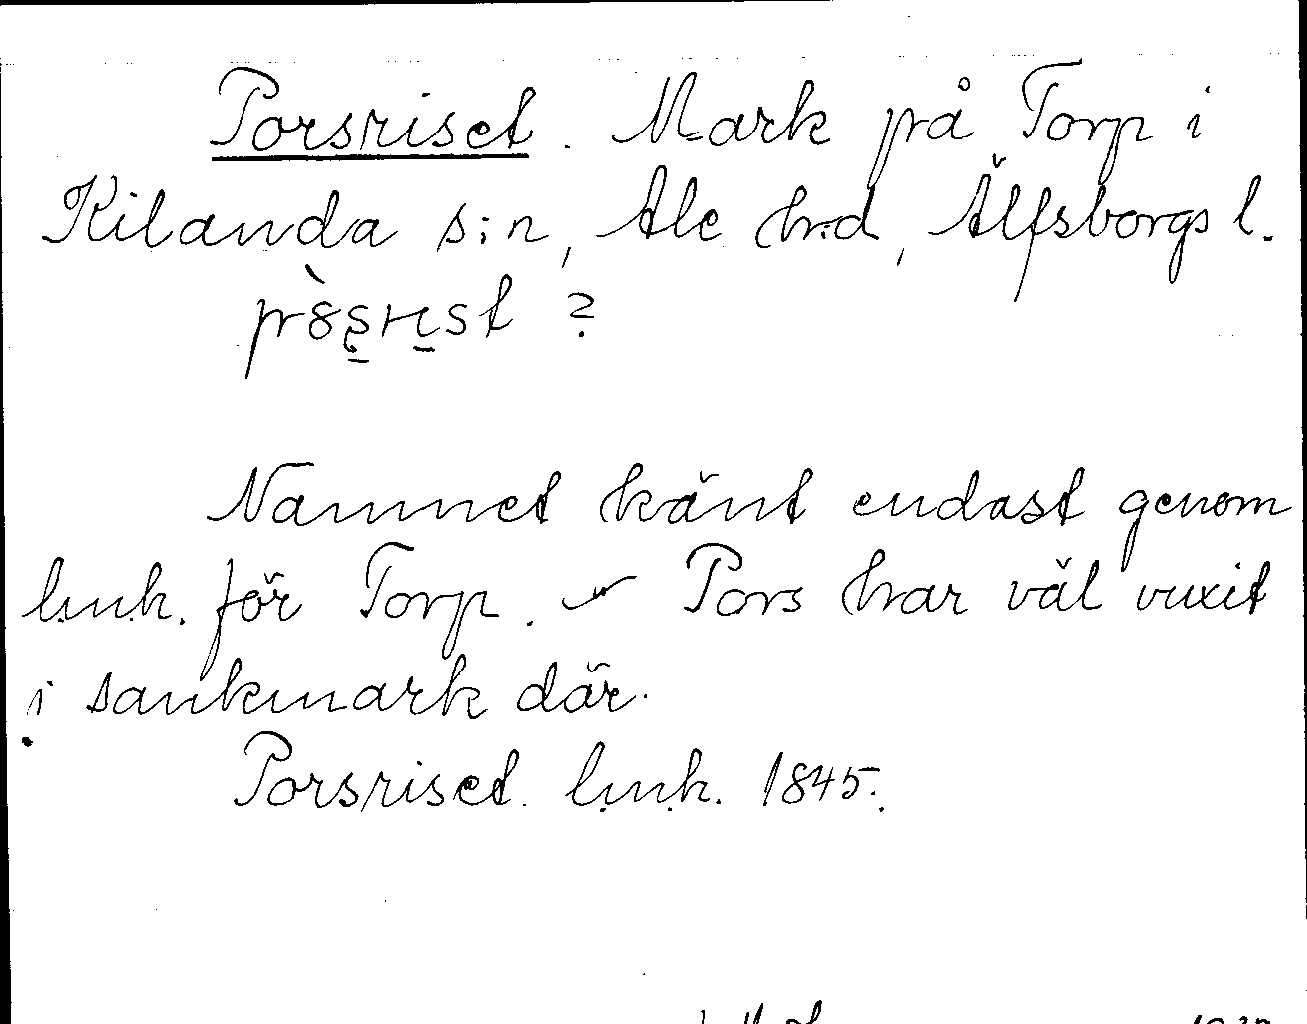 Porsriset. Mark på Torp i
Kilanda s:n, Ale h:d, Älfsborgs l.
?
Namnet känt endast genom
l.m.k. för Torp. Pors har väl vuxit
i sankmark där.
Porsriset. l.m.k. 1845.